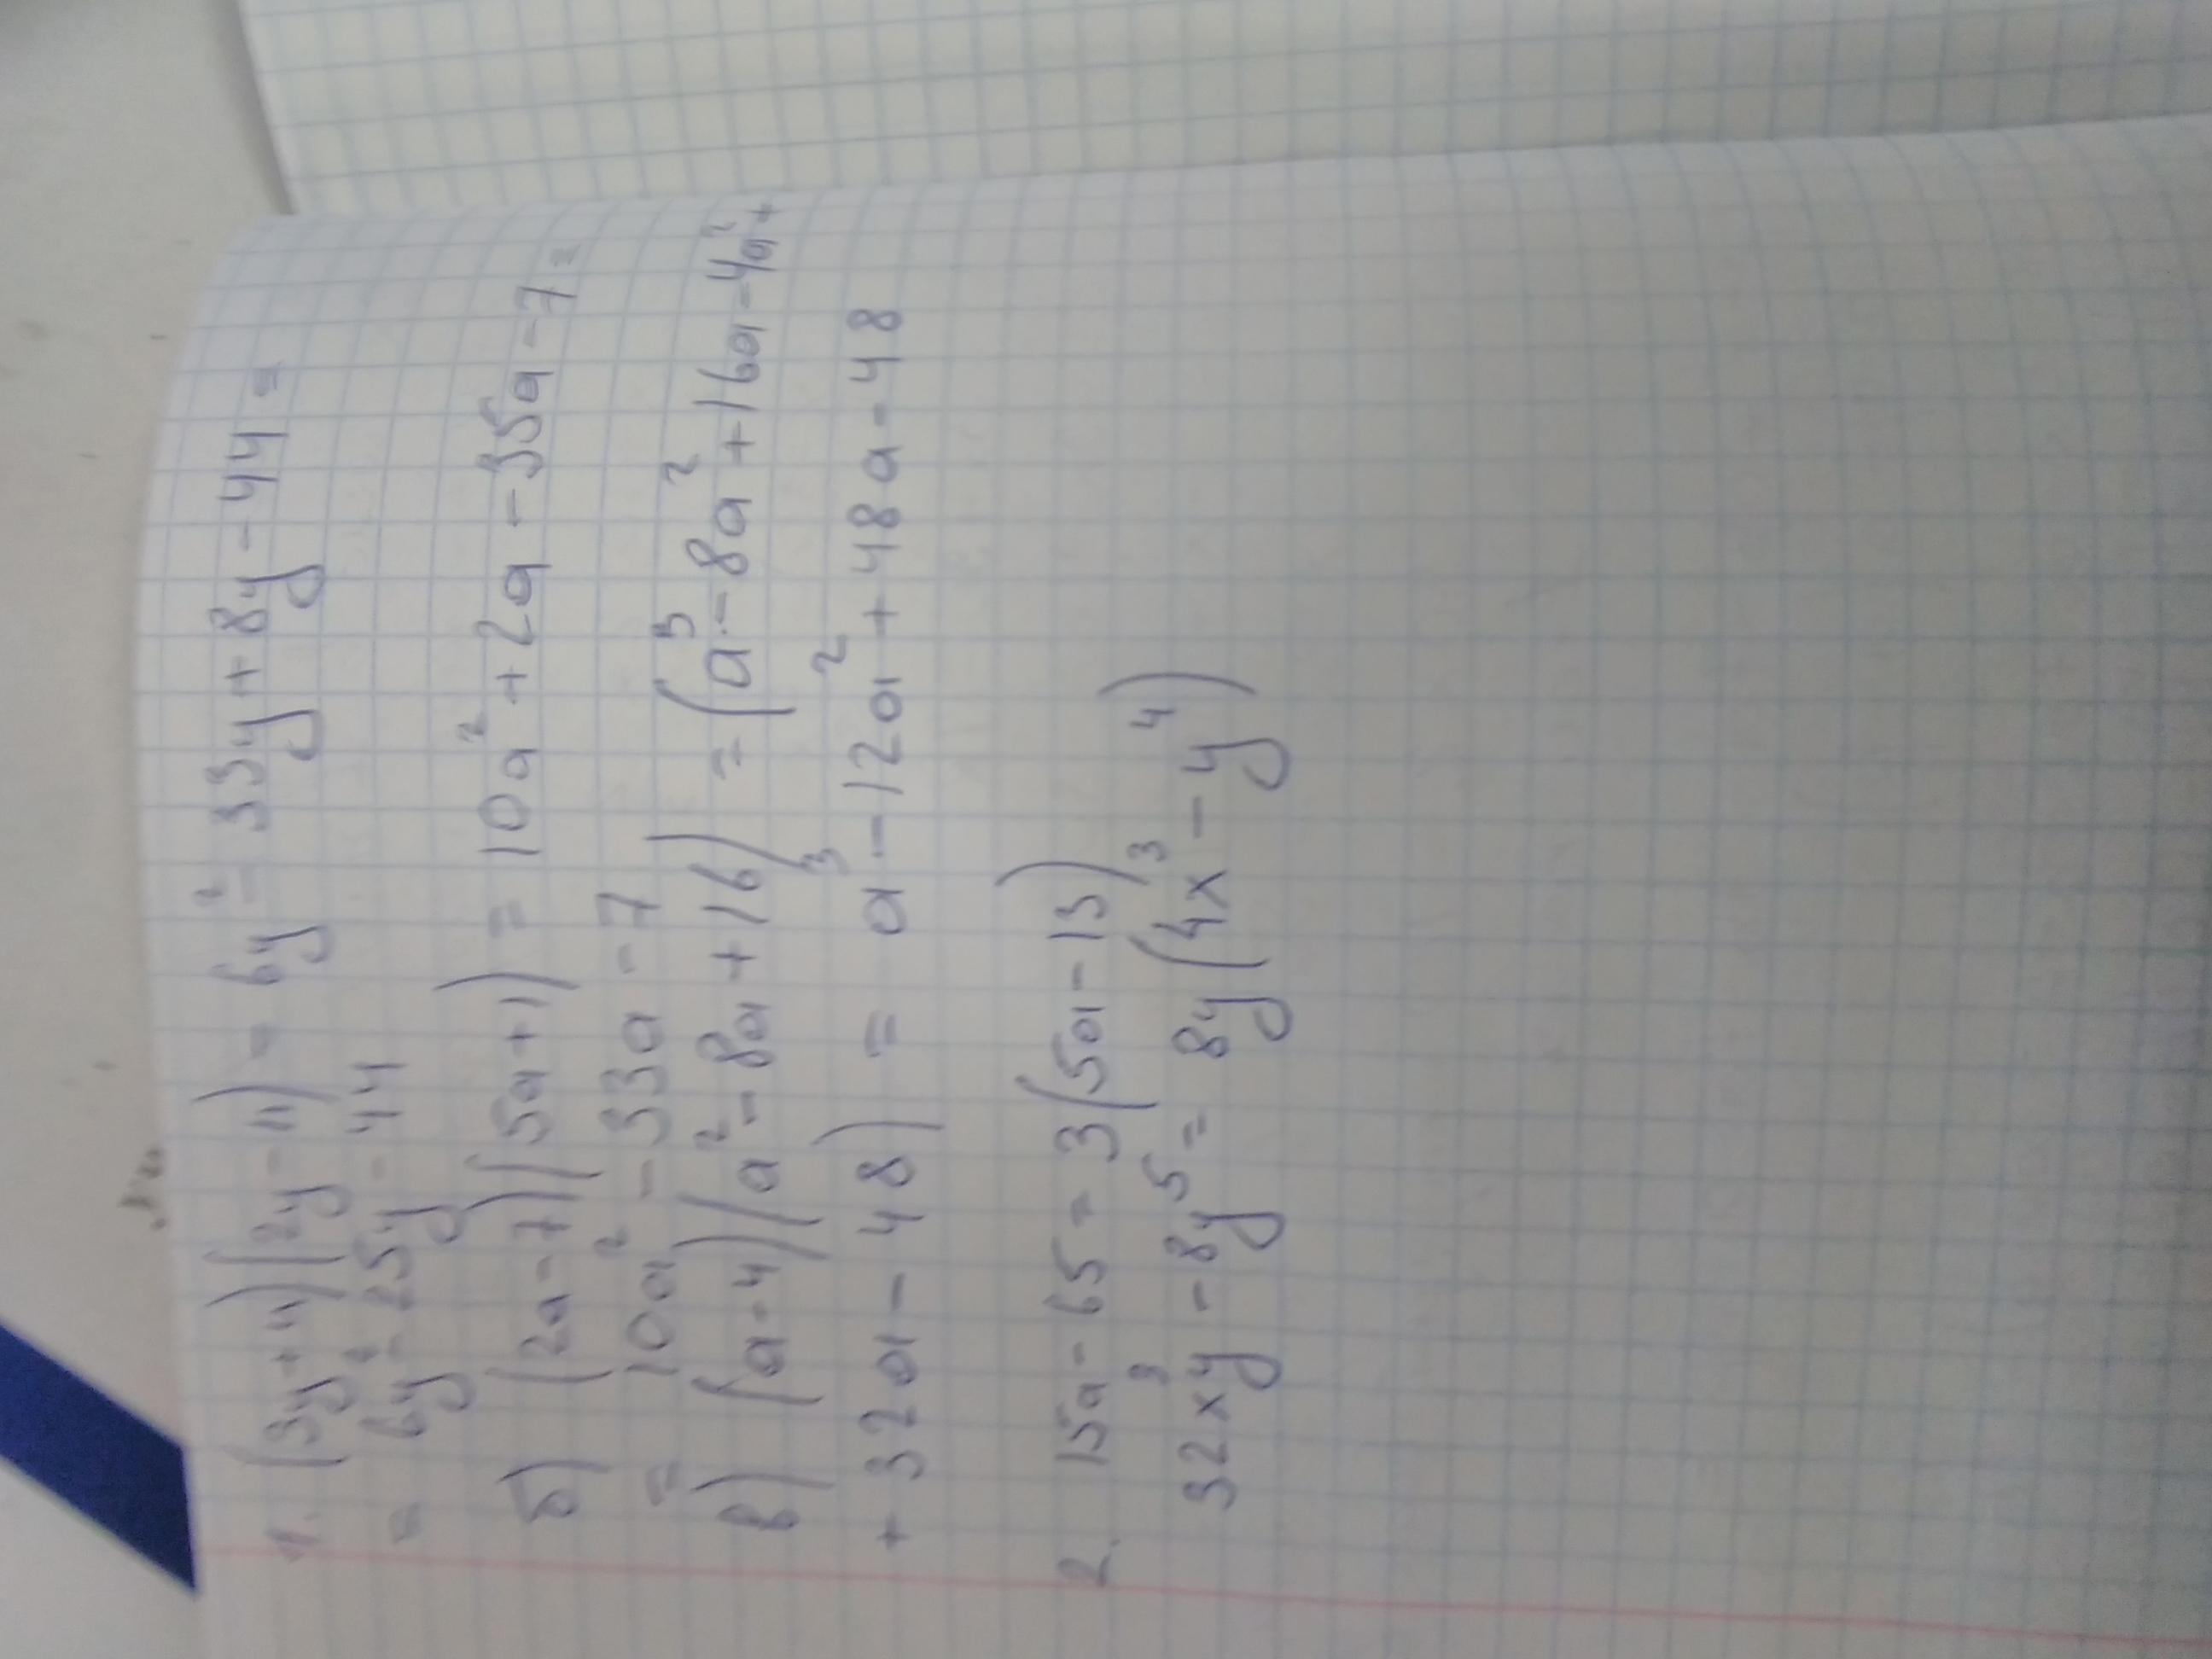 1. (3y+4)(2y-11) = 6y² - 33y + 8y - 44 =
= 6y² - 25y - 44
б) (2a-7)(5a+1) = 10a² + 2a - 35a - 7 =
= 10a² - 33a - 7
в) (a-4)(a² - 8a + 16) = (a³ - 8a² + 16a - 4a² +
+ 32a - 48) = a³ - 12a² + 48a - 48
2. 15a - 65 = 3(5a - 13)
32x³y - 8y⁵ = 8y(4x³ - y⁴)